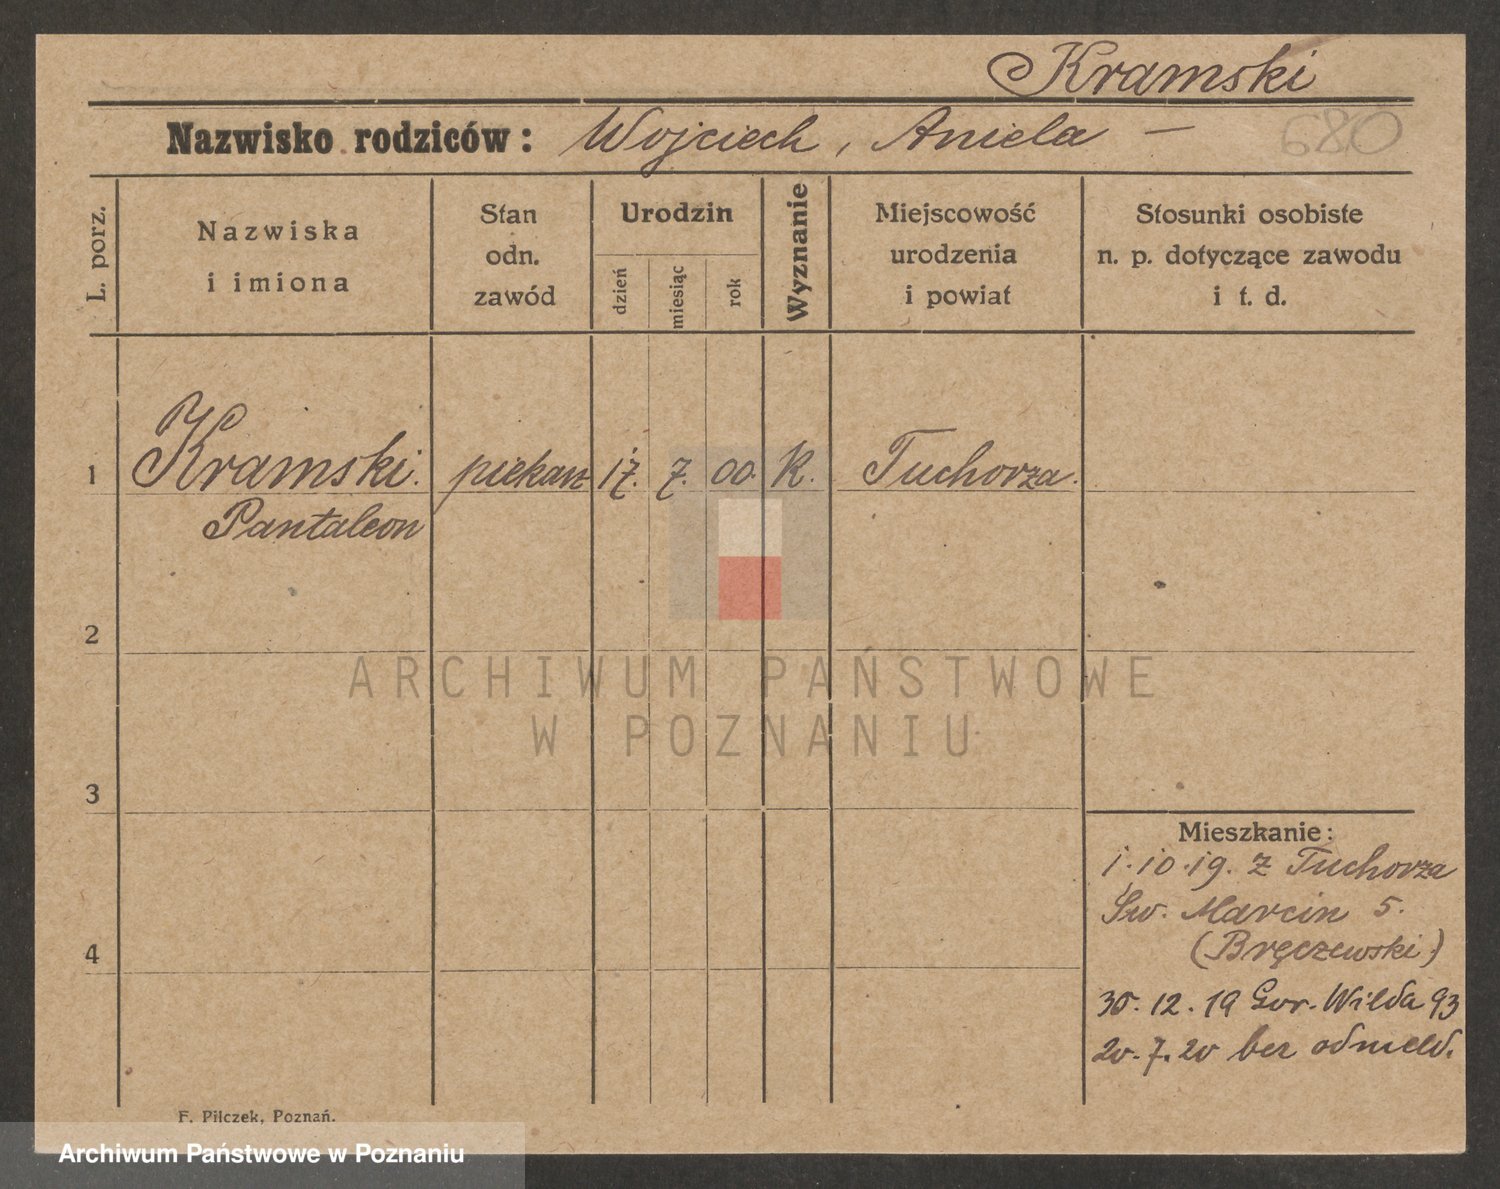 Kramski
Nazwisko rodziców: Wojciech, Aniela —
680
L. porz.
Nazwiska
i imiona
Stan
odn.
zawód
Urodzin
dzień
miesiąc
rok
Wyznanie
Miejscowość
urodzenia
i powiat
Stosunki osobiste
n. p. dotyczące zawodu
i t. d.
1 Kramski. piekarz 17. 7. 00. K. Tuchorza.
Pantaleon
2
3
4
ARCHIWUM PAŃSTWOWE
W POZNANIU
Mieszkanie:
1.10.19. z Tuchorza
Św. Marcin 5.
(Bręczewski)
30.12.19 Gor. Wilda 93
20.7.20 bez odmeld.
F. Pilczek, Poznań.
Archiwum Państwowe w Poznaniu